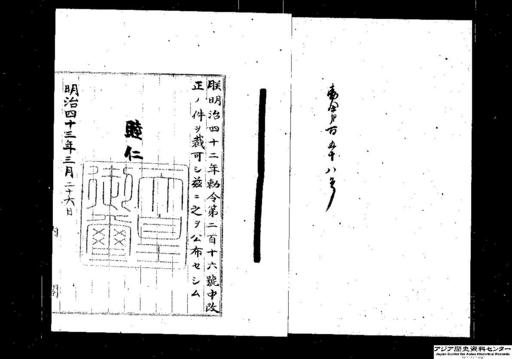 勅令第百五十八号
朕明治四十二年勅令第二百十六號中改
正ノ件ヲ裁可シ茲ニ之ヲ公布セシム
睦仁
天皇御璽
明治四十三年三月二十六日
内
アジア歴史資料センター
Japan Center for Asian Historical Records